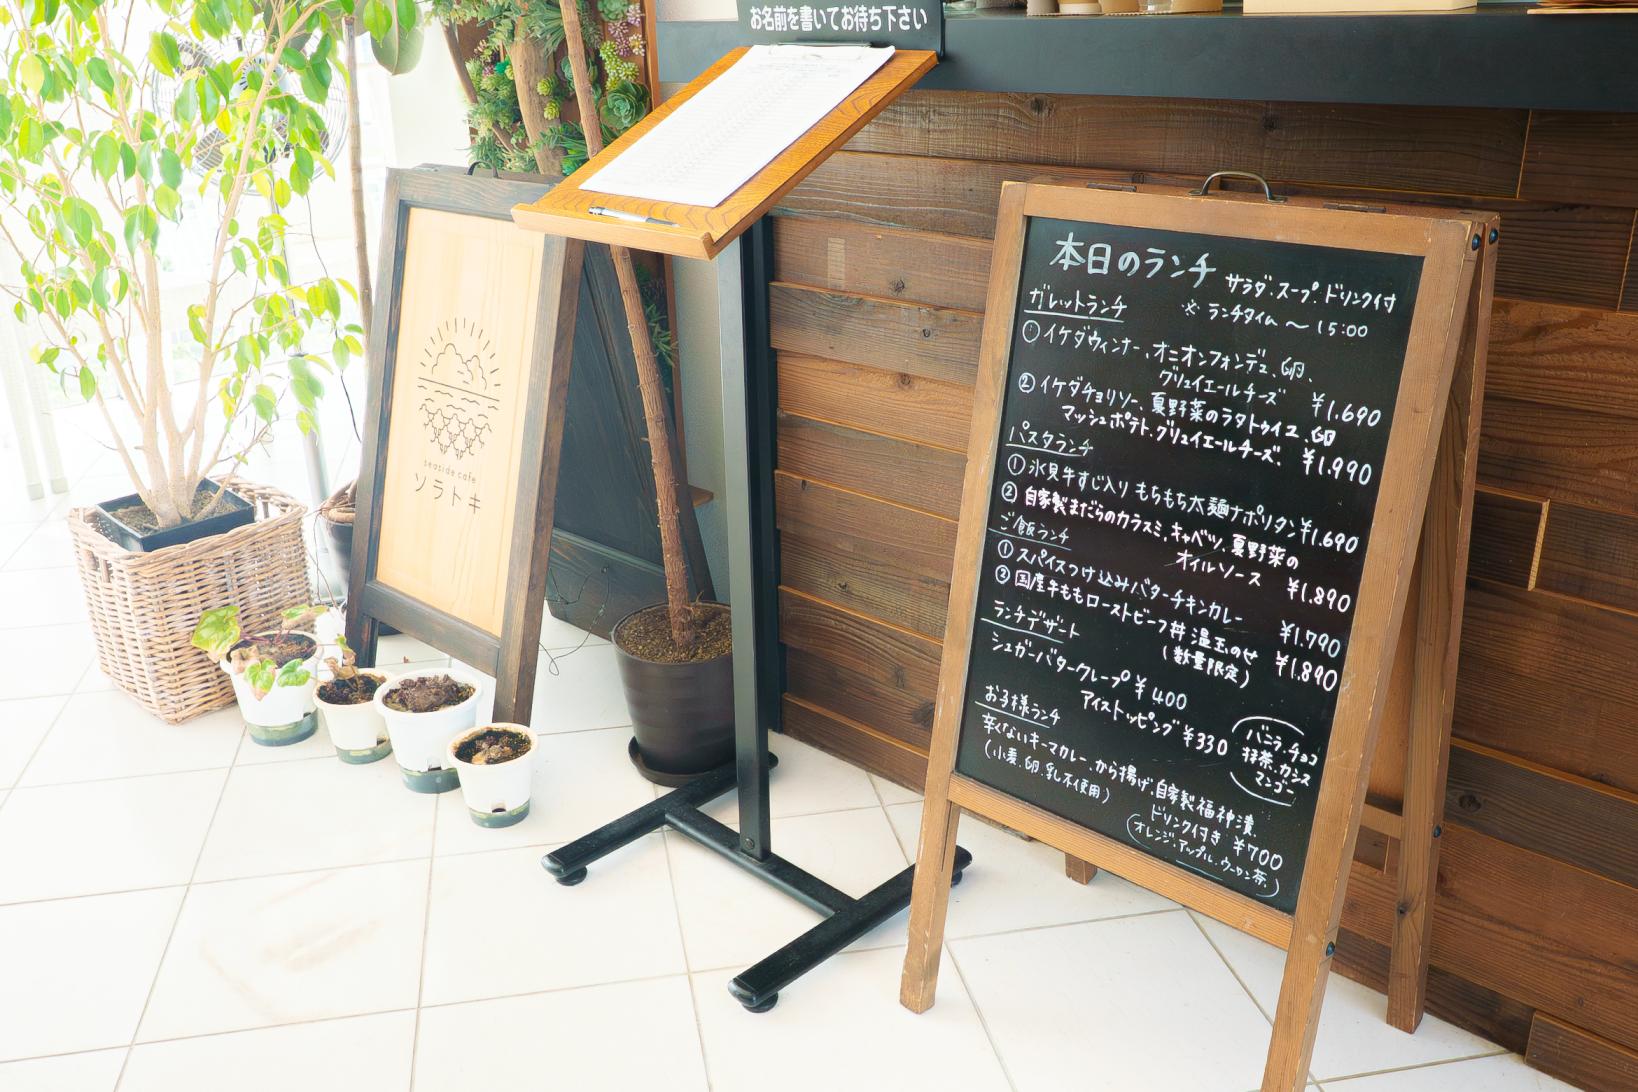 お名前を書いてお待ち下さい
seaside cafe
ソラトキ
本日のランチ
サラダ・スープ・ドリンク付
※ ランチタイム 〜 15:00
ガレットランチ
① イケダウィンナー、オニオンフォンデュ、卵、
グリュイエールチーズ ¥1.690
② イケダチョリソー、夏野菜のラタトゥイユ、卵
マッシュポテト、グリュイエールチーズ、 ¥1.990
パスタランチ
① 氷見牛すじ入り もちもち太麺ナポリタン ¥1.690
② 自家製まだらのカラスミ、キャベツ、夏野菜の
オイルソース ¥1.890
ご飯ランチ
① スパイスつけ込みバターチキンカレー ¥1.790
② 国産牛ももローストビーフ丼 温玉のせ
(数量限定) ¥1.890
ランチデザート
シュガーバタークレープ ¥400
アイストッピング ¥330
バニラ・チョコ
抹茶・カシス
マンゴー
お子様ランチ
辛くないキーマカレー、から揚げ、自家製福神漬、
(小麦、卵、乳不使用)
ドリンク付き ¥700
(オレンジ・アップル・ウーロン茶、)